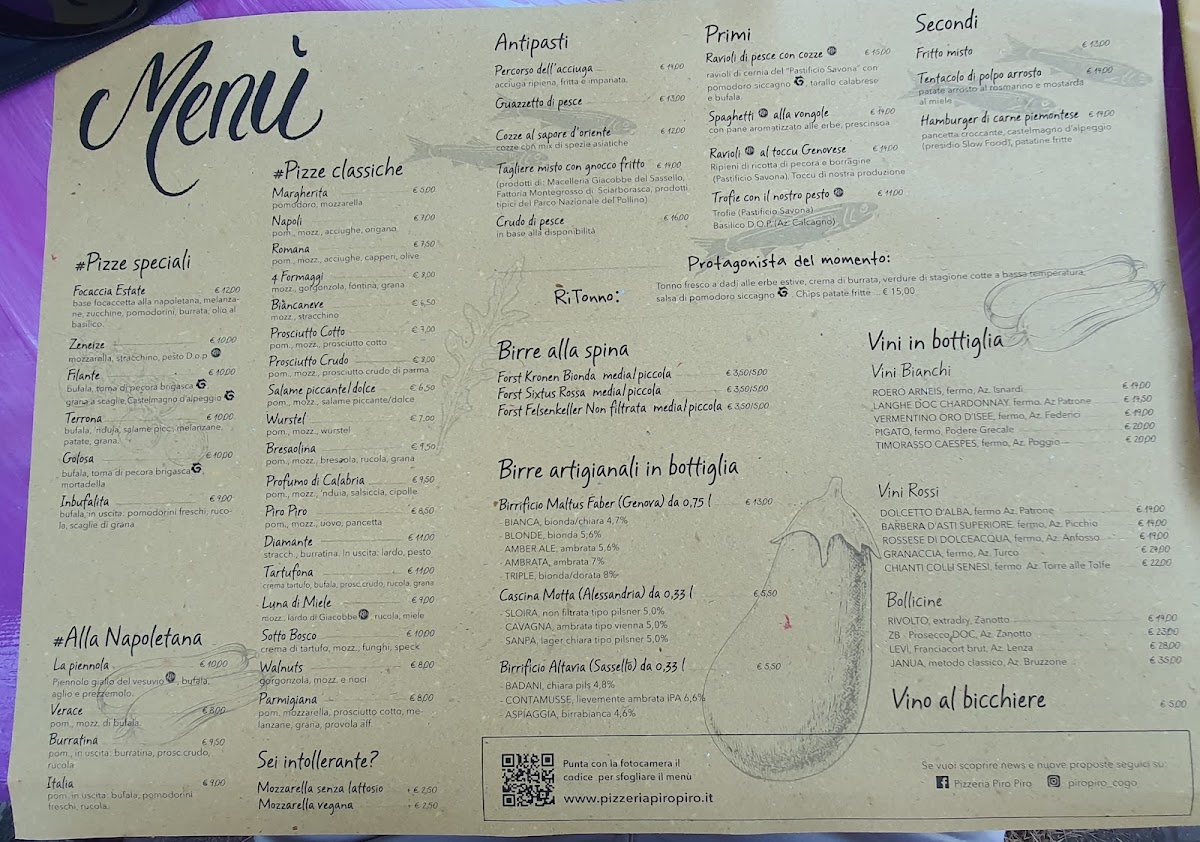 Menù
#Pizze speciali
Focaccia Estate € 12,00
base focaccetta alla napoletana, melanza-
ne, zucchine, pomodorini, burrata, olio al
basilico.
Zeneize € 10,00
mozzarella, stracchino, pesto D.o.p
Filante € 10,00
bufala, toma di pecora brigasca
grana a scaglie, Castelmagno d'alpeggio
Terrona € 10,00
bufala, 'nduja, salame picc., melanzane,
patate, grana.
Golosa € 10,00
bufala, toma di pecora brigasca
mortadella
Inbufalita € 9,00
bufala, in uscita: pomodorini freschi, ruco-
la, scaglie di grana
#Alla Napoletana
La piennola € 10,00
Piennolo giallo del vesuvio, bufala,
aglio e prezzemolo.
Verace € 8,00
pom., mozz. di bufala.
Burratina € 9,50
pom., in uscita: burratina, prosc crudo,
rucola
Italia € 9,00
pom. in uscita: bufala, pomodorini
freschi, rucola.
#Pizze classiche
Margherita € 5,00
pomodoro, mozzarella
Napoli € 7,00
pom., mozz., acciughe, origano
Romana € 7,50
pom., mozz., acciughe, capperi, olive
4 Formaggi
mozz., gorgonzola, fontina, grana
Biancaneve € 6,50
mozz., stracchino
Prosciutto Cotto
pom., mozz., prosciutto cotto
Prosciutto Crudo
pom., mozz., prosciutto crudo di parma
Salame piccante/dolce € 6,50
pom., mozz., salame piccante/dolce
Wurstel € 7,00
pom., mozz., wurstel
Bresaolina € 9,50
pom., mozz., bresaola, rucola, grana
Profumo di Calabria € 9,50
pom., mozz., 'nduia, salsiccia, cipolle
Piro Piro € 8,50
pom., mozz., uovo, pancetta
Diamante € 11,00
stracch., burratina. In uscita: lardo, pesto
Tartufona € 11,00
crema tartufo, bufala, prosc.crudo, rucola, grana
Luna di Miele € 9,00
mozz., lardo di Giacobbe, rucola, miele
Sotto Bosco € 10,00
crema di tartufo, mozz., funghi, speck
Walnuts € 8,00
gorgonzola, mozz. e noci
Parmigiana € 8,00
pom, mozzarella, prosciutto cotto, me-
lanzane, grana, provola aff.
Sei intollerante?
Mozzarella senza lattosio + € 2,50
Mozzarella vegana + € 2,50
Antipasti
Percorso dell'acciuga € 14,00
acciuga ripiena, fritta e impanata.
Guazzetto di pesce € 13,00
Cozze al sapore d'oriente € 12,00
cozze con mix di spezie asiatiche
Tagliere misto con gnocco fritto € 14,00
(prodotti di: Macelleria Giacobbe del Sassello,
Fattoria Montegrosso di Sciarborasca, prodotti
tipici del Parco Nazionale del Pollino)
Crudo di pesce € 16,00
in base alla disponibilità
Primi
Ravioli di pesce con cozze € 15,00
ravioli di cernia del "Pastificio Savona" con
pomodoro siccagno, tarallo calabrese
e bufala.
Spaghetti alla vongole € 14,00
con pane aromatizzato alle erbe, prescinsoa
Ravioli al toccu Genovese € 14,00
Ripieni di ricotta di pecora e borragine
(Pastificio Savona). Toccu di nostra produzione
Trofie con il nostro pesto € 11,00
Trofie (Pastificio Savona)
Basilico D.O.P. (Az. Calcagno)
Secondi
Fritto misto € 13,00
Tentacolo di polpo arrosto € 14,00
patate arrosto al rosmarino e mostarda
al miele
Hamburger di carne piemontese € 14,00
pancetta croccante, castelmagno d'alpeggio
(presidio Slow Food), patatine fritte
Protagonista del momento:
RiTonno:
Tonno fresco a dadi alle erbe estive, crema di burrata, verdure di stagione cotte a bassa temperatura,
salsa di pomodoro siccagno. Chips patate fritte ... € 15,00
Birre alla spina
Forst Kronen Bionda media/piccola € 3,50/5,00
Forst Sixtus Rossa media/piccola € 3,50/5,00
Forst Felsenkeller Non filtrata media/piccola € 3,50/5,00
Birre artigianali in bottiglia
Birrificio Maltus Faber (Genova) da 0,75 l € 13,00
- BIANCA, bionda/chiara 4,7%
- BLONDE, bionda 5,6%
- AMBER ALE, ambrata 5,6%
- AMBRATA, ambrata 7%
- TRIPLE, bionda/dorata 8%
Cascina Motta (Alessandria) da 0,33 l € 5,50
- SLOIRA, non filtrata tipo pilsner 5,0%
- CAVAGNA, ambrata tipo vienna 5,0%
- SANPA, lager chiara tipo pilsner 5,0%
Birrificio Altavia (Sassello) da 0,33 l € 5,50
- BADANI, chiara pils 4,8%
- CONTAMUSSE, lievemente ambrata IPA 6,6%
- ASPIAGGIA, birrabianca 4,6%
Vini in bottiglia
Vini Bianchi
ROERO ARNEIS, fermo, Az. Isnardi € 19,00
LANGHE DOC CHARDONNAY, fermo, Az Patrone € 19,50
VERMENTINO ORO D'ISEE, fermo, Az. Federici € 19,00
PIGATO, fermo, Podere Grecale € 20,00
TIMORASSO CAESPES, fermo, Az. Poggio € 20,00
Vini Rossi
DOLCETTO D'ALBA, fermo Az. Patrone € 14,00
BARBERA D'ASTI SUPERIORE, fermo, Az. Picchio € 14,00
ROSSESE DI DOLCEACQUA, fermo, Az. Anfosso € 19,00
GRANACCIA, fermo, Az. Turco € 24,00
CHIANTI COLLI SENESI, fermo Az. Torre alle Tolfe € 22,00
Bollicine
RIVOLTO, extradry, Zanotto € 19,00
ZB - Prosecco DOC, Az. Zanotto € 23,00
LEVI, Franciacort brut, Az. Lenza € 28,00
JANUA, metodo classico, Az. Bruzzone € 35,00
Vino al bicchiere € 5,00
Punta con la fotocamera il
codice per sfogliare il menù
www.pizzeriapiropiro.it
Se vuoi scoprire news e nuove proposte seguici su:
Pizzeria Piro Piro piropiro_cogo